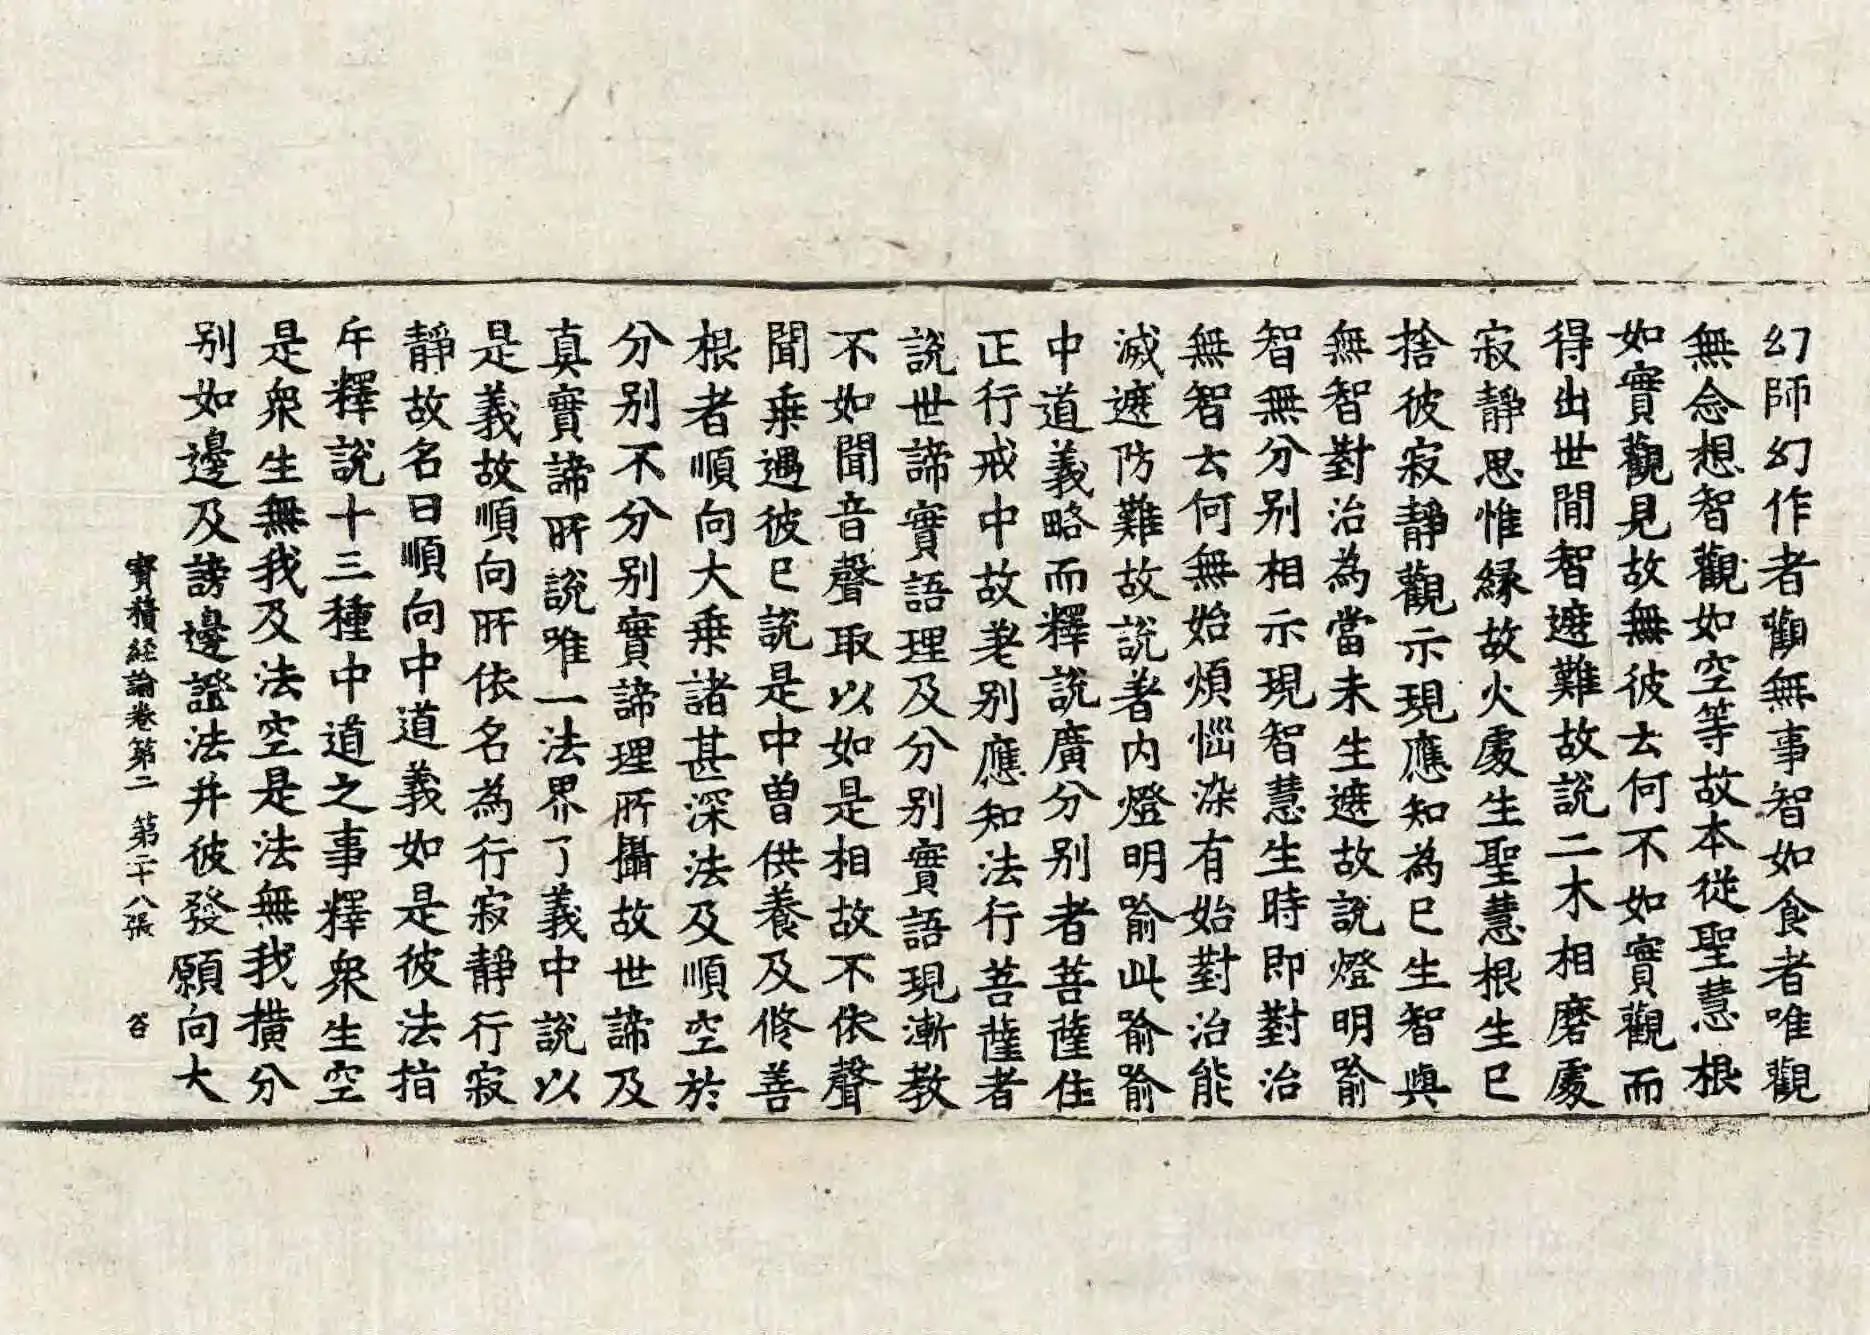 幻師幻作者觀無事智如食者唯觀
無念想智觀如空等故本從聖慧根
如實觀見故無彼云何不如實觀而
得出世間智遮難故說二木相磨處
寂靜思惟緣故火處生聖慧根生已
捨彼寂靜觀示現應知為已生智與
無智對治為當未生遮故說燈明喻
智無分別相示現智慧生時即對治
無智云何無始煩惱染有始對治能
滅遮防難故說著內燈明喻此喻喻
中道義略而釋說廣分別者菩薩住
正行戒中故差別應知法行菩薩者
說世諦實語理及分別實語現漸教
不如聞音聲取以如是相故不依聲
聞乗遇彼已說是中曽供養及修善
根者順向大乗諸甚深法及順空於
分別不分別實諦理所攝故世諦及
真實諦所說唯一法界了義中說以
是義故順向所依名為行寂靜行寂
靜故名曰順向中道義如是彼法指
斥釋說十三種中道之事釋衆生空
是衆生無我及法空是法無我橫分
別如邊及謗邊證法并彼發願向大
寶積經論卷第二 第二十八張 答